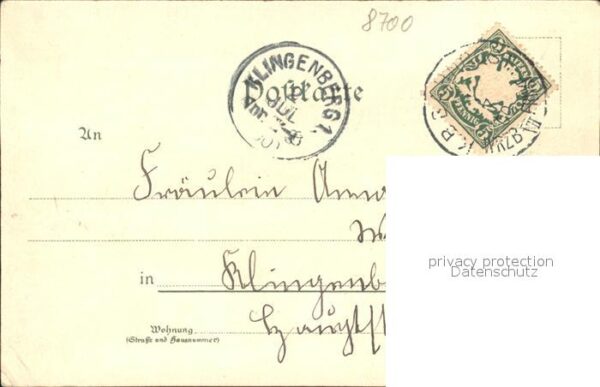 8700
KLINGENBERG 1.
Postkarte
JUL
An
Fräulein Anna
in Klingenb
Wohnung
(Straße und Hausnummer)
Hauptst
privacy protection
Datenschutz